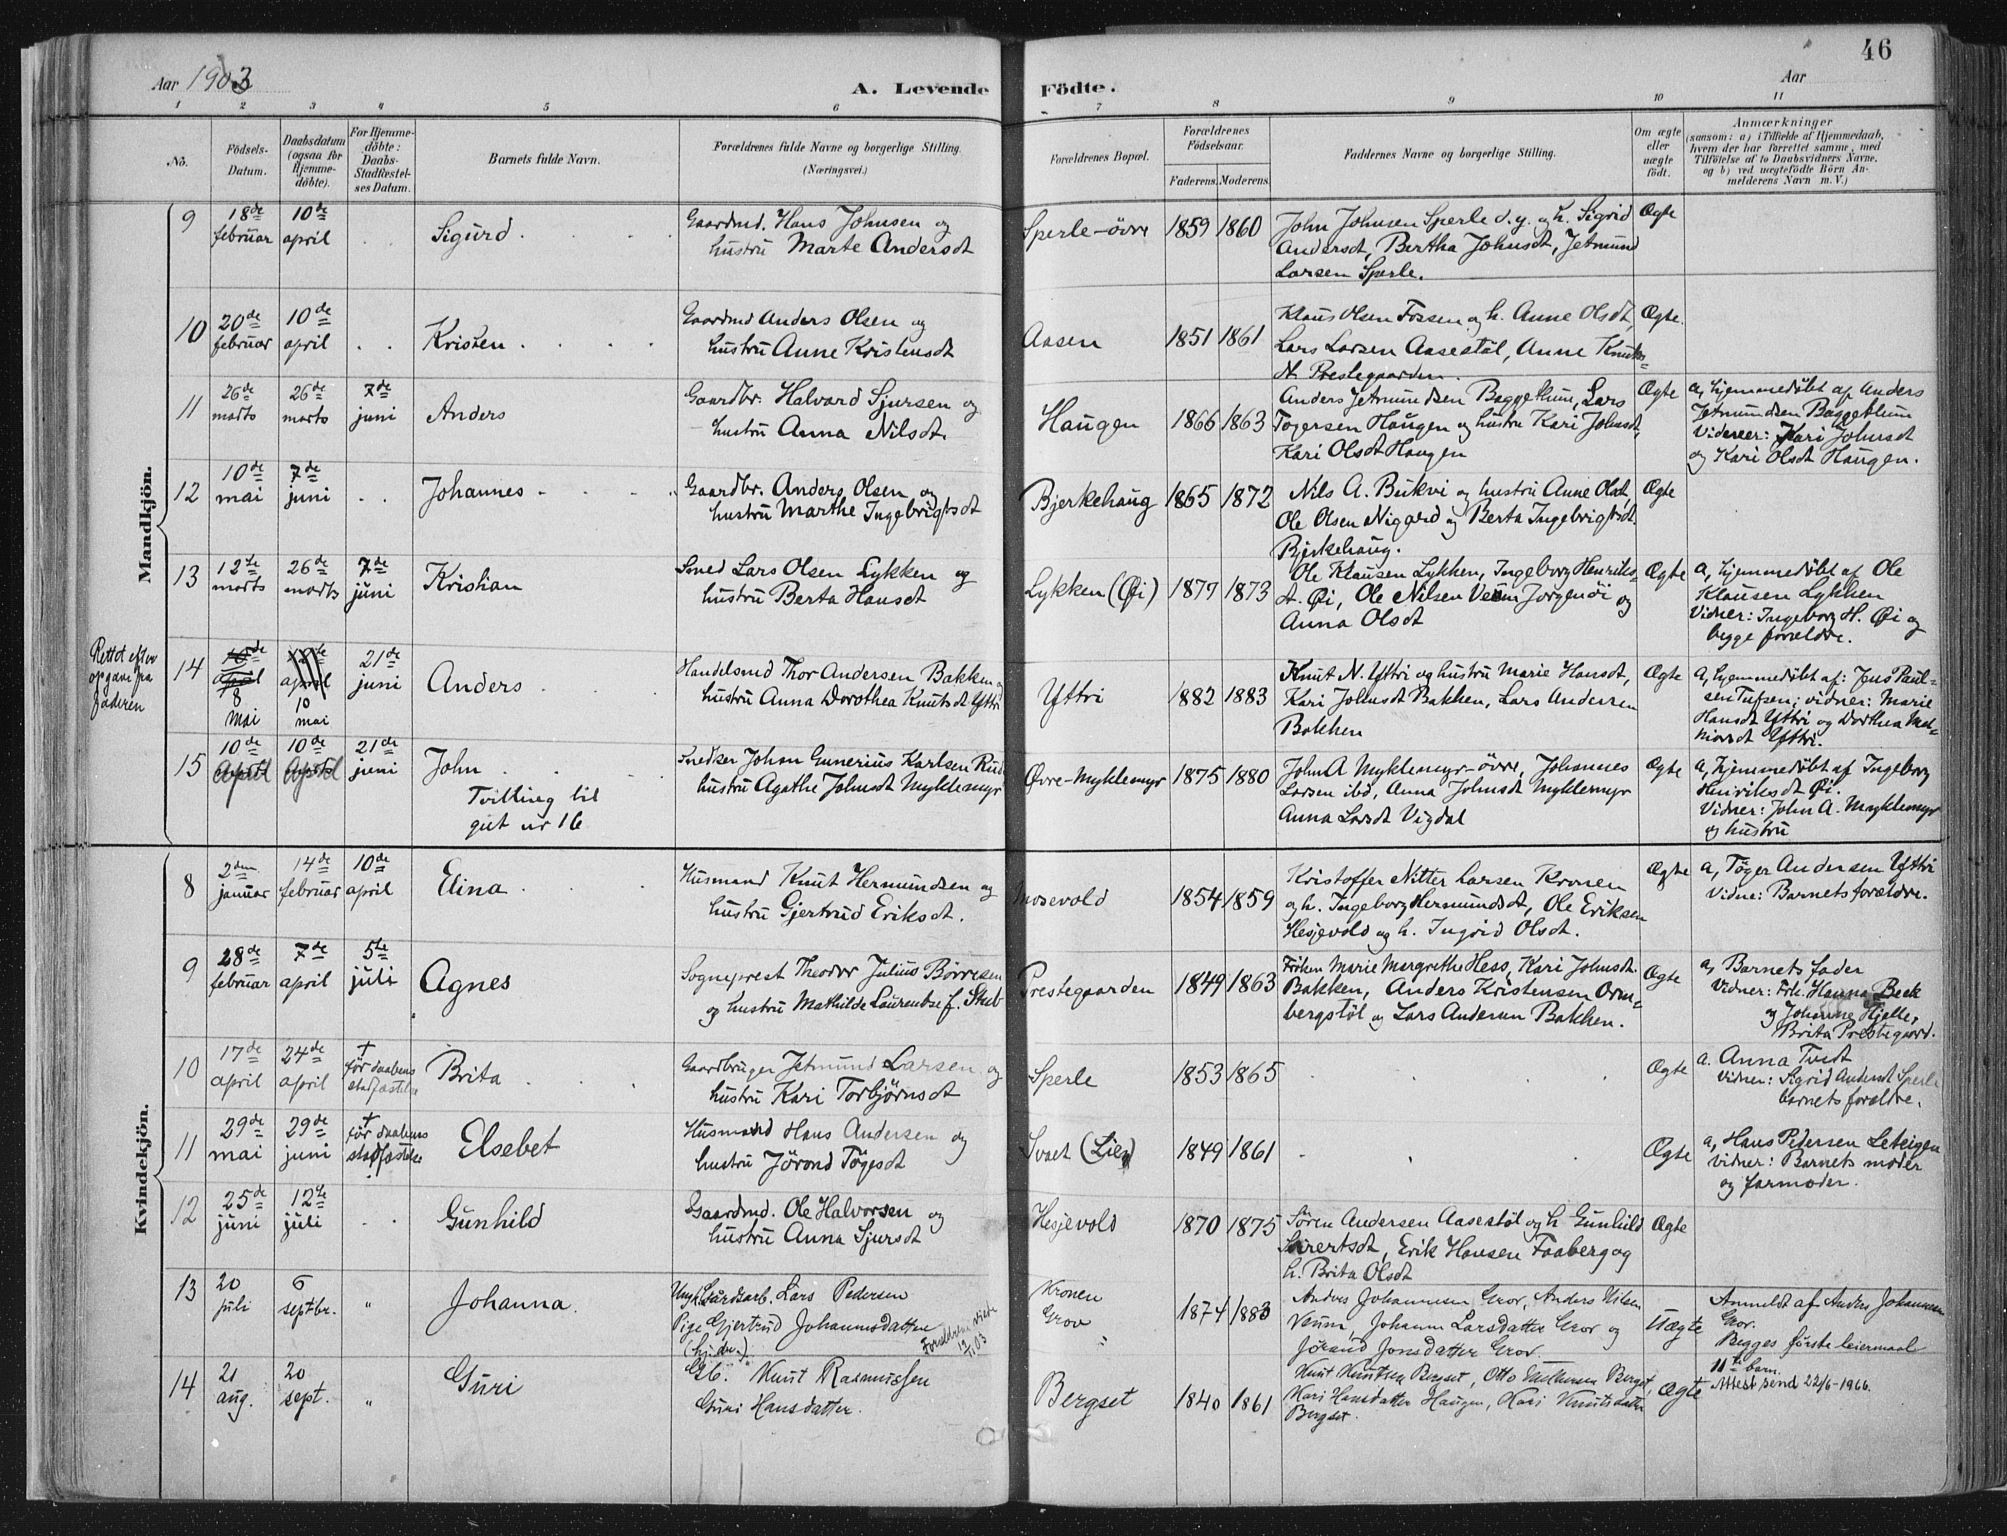 46
Aar 1903
A. Levende Födte.
Aar
1 2 3 4 5 6 7 8 9 10 11
No.
Födsels-
Datum.
Daabsdatum
(ogsaa for
Hjemme-
döbte).
For Hjemme-
döbte:
Daabs-
Stadfæstel-
ses Datum.
Barnets fulde Navn.
Forældrenes fulde Navne og borgerlige Stilling.
(Næringsvei.)
Forældrenes Bopæl.
Forældrenes
Födselsaar.
Faderens. Moderens.
Faddernes Navne og borgerlige Stilling.
Om ægte
eller
uægte
födt.
Anmærkninger
(sansom: a) i Tilfælde af Hjemmedaab,
hvem der har forrettet samme, med
Tilföielse af to Daabsvidners Navne,
og b) ved uægtefödte Börn An-
melderens Navn m. V.)
Mandkjön.
9
18de
februar
10de
april
Sigurd
Gaardmd. Hans Johnsen og
hustru Marte Andersdt
Sperle-övre
1859 1860
John Johnsen Sperle d.y. og h. Sigrid
Andersdt, Bertha Johnsdt, Jetmund
Larsen Sperle.
Ægte
10
20de
februar
10de
april
Kristen
Gaardmd Anders Olsen og
hustru Anne Kristensdt
Aasen
1851 1861
Klaus Olsen Fossen og h. Anne Olsdt,
Lars Larsen Aasestøl, Anne Knuts=
dt Prestegaarden.
Ægte.
11
26de
marts
26de
marts
7de
juni
Anders
Gaardbr. Halvard Sjursen og
hustru Anna Nilsdt.
Haugen
1866 1863
Anders Jetmundsen Baggethun, Lars
Tøgersen Haugen og hustru Kari Johnsdt,
Kari Olsdt Haugen
Ægte
a, hjemmedøbt af Anders
Jetmundsen Baggethun
Vidner: Kari Johnsdt
og Kari Olsdt Haugen.
12
10de
mai
7de
juni
Johannes
Gaardbr. Anders Olsen og
hustru Marthe Ingebrigtsdt
Bjerkehaug
1865 1872
Nils A. Bukvi og hustru Anne Olsdt,
Ole Olsen Niggard og Berta Ingebrigtsdt
Bjerkehaug.
Ægte
13
12te
marts
26de
marts
7de
juni
Kristian
Smed Lars Olsen Lykken og
hustru Berta Hansdt
Lykken (Øi)
1877 1873
Ole Klausen Lykken, Ingeborg Henriks-
dt. Øi, Ole Nilsen Veum Jorgenøi og
Anna Olsdt
Ægte
a, hjemmedøbt af Ole
Klausen Lykken
Vidner: Ingeborg H. Øi og
begge forældre.
Rettet efter
opgave fra
faderen
14
10de
april
8
mai
12te
april
10
mai
21de
juni
Anders
Handelsmd Thor Andersen Bakken og
hustru Anna Dorothea Knutsdt Yttri
Yttri
1882 1883
Knut N. Yttri og hustru Marie Hansdt,
Kari Johnsdt Bakken, Lars Andersen
Bakken
Ægte
a, hjemmedøbt af: Jens Paul-
sen Tufsen; vidner: Marie
Hansdt Yttri og Dorthea
Yttri.
15
10de
April
10de
April
21de
juni
John
Tvilling til
gut nr 16
Snedker Johan Gunerius Karlsen Rud
hustru Agathe Johnsdt Myklemyr
Øvre-Myklemyr
1875 1880
John A Myklemyr-övre, Johannes
Larsen ibd, Anna Johnsdt Myklemyr
Anna Larsdt Vigdal
Ægte
a, hjemmedøbt af Ingeborg
Henriksdt Øi.
Vidner: John A. Myklemyr
og hustru
Kvindekjön.
8
2den
januar
14de
februar
10de
april
Elina
Husmand Knut Hermundsen og
hustru Gjertrud Eriksdt.
Mosevold
1854 1859
Kristoffer Nitter Larsen Kronen
og h. Ingeborg Hermundsdt, Ole Eriksen
Hesjevold og h. Ingrid Olsdt.
Ægte
a, Tøger Andersen Yttri
Vidne: Barnets forældre.
9
28de
februar
7de
april
5te
juli
Agnes
Sogneprest Theodor Julius Börresen
og hustru Mathilde Laurentse f. Stub
Prestegaarden
1849 1863
Frøken Marie Margrethe Hess, Kari Johnsdt
Bakken, Anders Kristensen Orm=
bergstøl og Lars Andersen Bakken.
Ægte
a, Barnets fader
Vidner: Frk. Hanna Beck
og Johanne Kjelle,
Brita Prestegaard.
10
17de
april
24de
april
†
før daabens
stadfæstelse
Brita
Gaardbruger Jetmund Larsen og
hustru Kari Torbjørnsdt
Sperle
1853 1865
Ægte
a. Anna Tvedt
Vidner: Sigrid Andersdt Sperle
barnets forældre.
11
29de
mai
29de
juni
†
før daabens
stadfæstelse
Elsebet
Husmand Hans Andersen og
hustru Jörond Tøgesdt
Svaet (Lien)
1849 1861
Ægte
a, Hans Pedersen Leteigen
Vidner: Barnets moder
og farmoder.
12
25de
juni
12te
juli
Gunhild
Gaardmd. Ole Halvorsen og
hustru Anna Sjursdt
Hesjevold
1870 1875
Søren Andersen Aasestøl og h Gunhild
Sivertsdt, Erik Hansen Faaberg og
h. Brita Olsdt
Ægte
13
20
juli
6
septbr.
"
Johanna.
Ungk. Gardsarb. Lars Pedersen
Pige Gjertrud Johannesdatter
Forældrene viede
12/11.03
Kronen
Grov
1874 1883
Anders Johannesen Grov, Anders Nilsen
Veum, Johanna Larsdatter Grov og
Jørand Jonsdatter Grov.
Uægte
Anmeldt af Anders Johannesen
Grov.
Begges første leiermaal
14
21
aug.
20
sept.
"
Guri
Gb. Knut Rasmussen
Guri Hansdatter.
Bergset
1840 1861
Knut Knutsen Bergset, Otto Bergset,
Mari Hansdatter Haugen, Kari Knutsdatter
Bergset.
Ægte
11te barn
Attest send 22/6-1966.